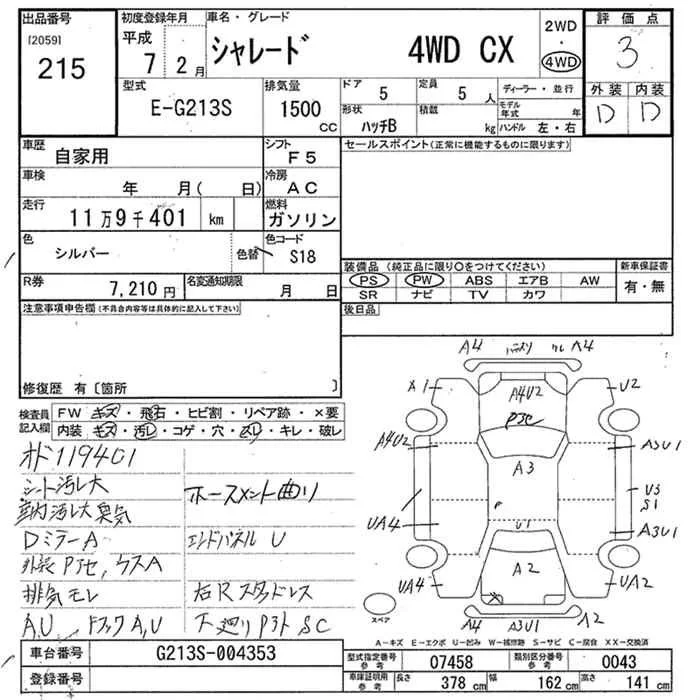 出品番号 初度登録年月 車名・グレード 2WD 評価点
[2059] 平成 シャレード 4WD CX ・ 3
215 7年2月 4WD
型式 排気量 ドア 5 定員 5人 ディーラー・並行 外装 内装
E-G213S 1500cc 形状 ハッチB 積載 kg モデル年式 年 D D
ハンドル 左・右
車歴 自家用 シフト F5 セールスポイント(正常に機能するものに限ります)
車検 年 月( 日) 冷房 AC
走行 11万9千401 km 燃料 ガソリン
色 シルバー 色替 色コード S18
装備品 (純正品に限り○をつけてください) 新車保証書
R券 7,210円 名変通知期限 月 日 PS PW ABS エアB AW 有・無
SR ナビ TV カワ
注意事項申告欄(不具合内容等は具体的に記入して下さい) 後日品
修復歴 有〔箇所 〕
検査員記入欄 FW キズ・飛石・ヒビ割・リペア跡・×要
内装 キズ・汚レ・コゲ・穴・スレ・キレ・破レ
メド119401
シート汚レ大 ホースメント曲り
車内汚レ大臭気
DミラーA エンドパネルU
外装Pハセ,ウスA
排気モレ 右Rスタッドレス
A,U ドアックA,U 下廻りPヲトSC
A4 A4
A1 A4U2 U2
Pハセ
A4U2 A3 A3U1
U3
S1
UA4 U1 A3U1
UA4 A2 UA2
スペア A4 A3U1 A2
A-キズ E-エクボ U-凹み W-補修跡 S-サビ C-腐食 XX-交換済
車台番号 G213S-004353 型式指定番号 参考 07458 類別区分番号 参考 0043
登録番号 車庫証明用 参考 長さ 378cm 幅 162cm 高さ 141cm